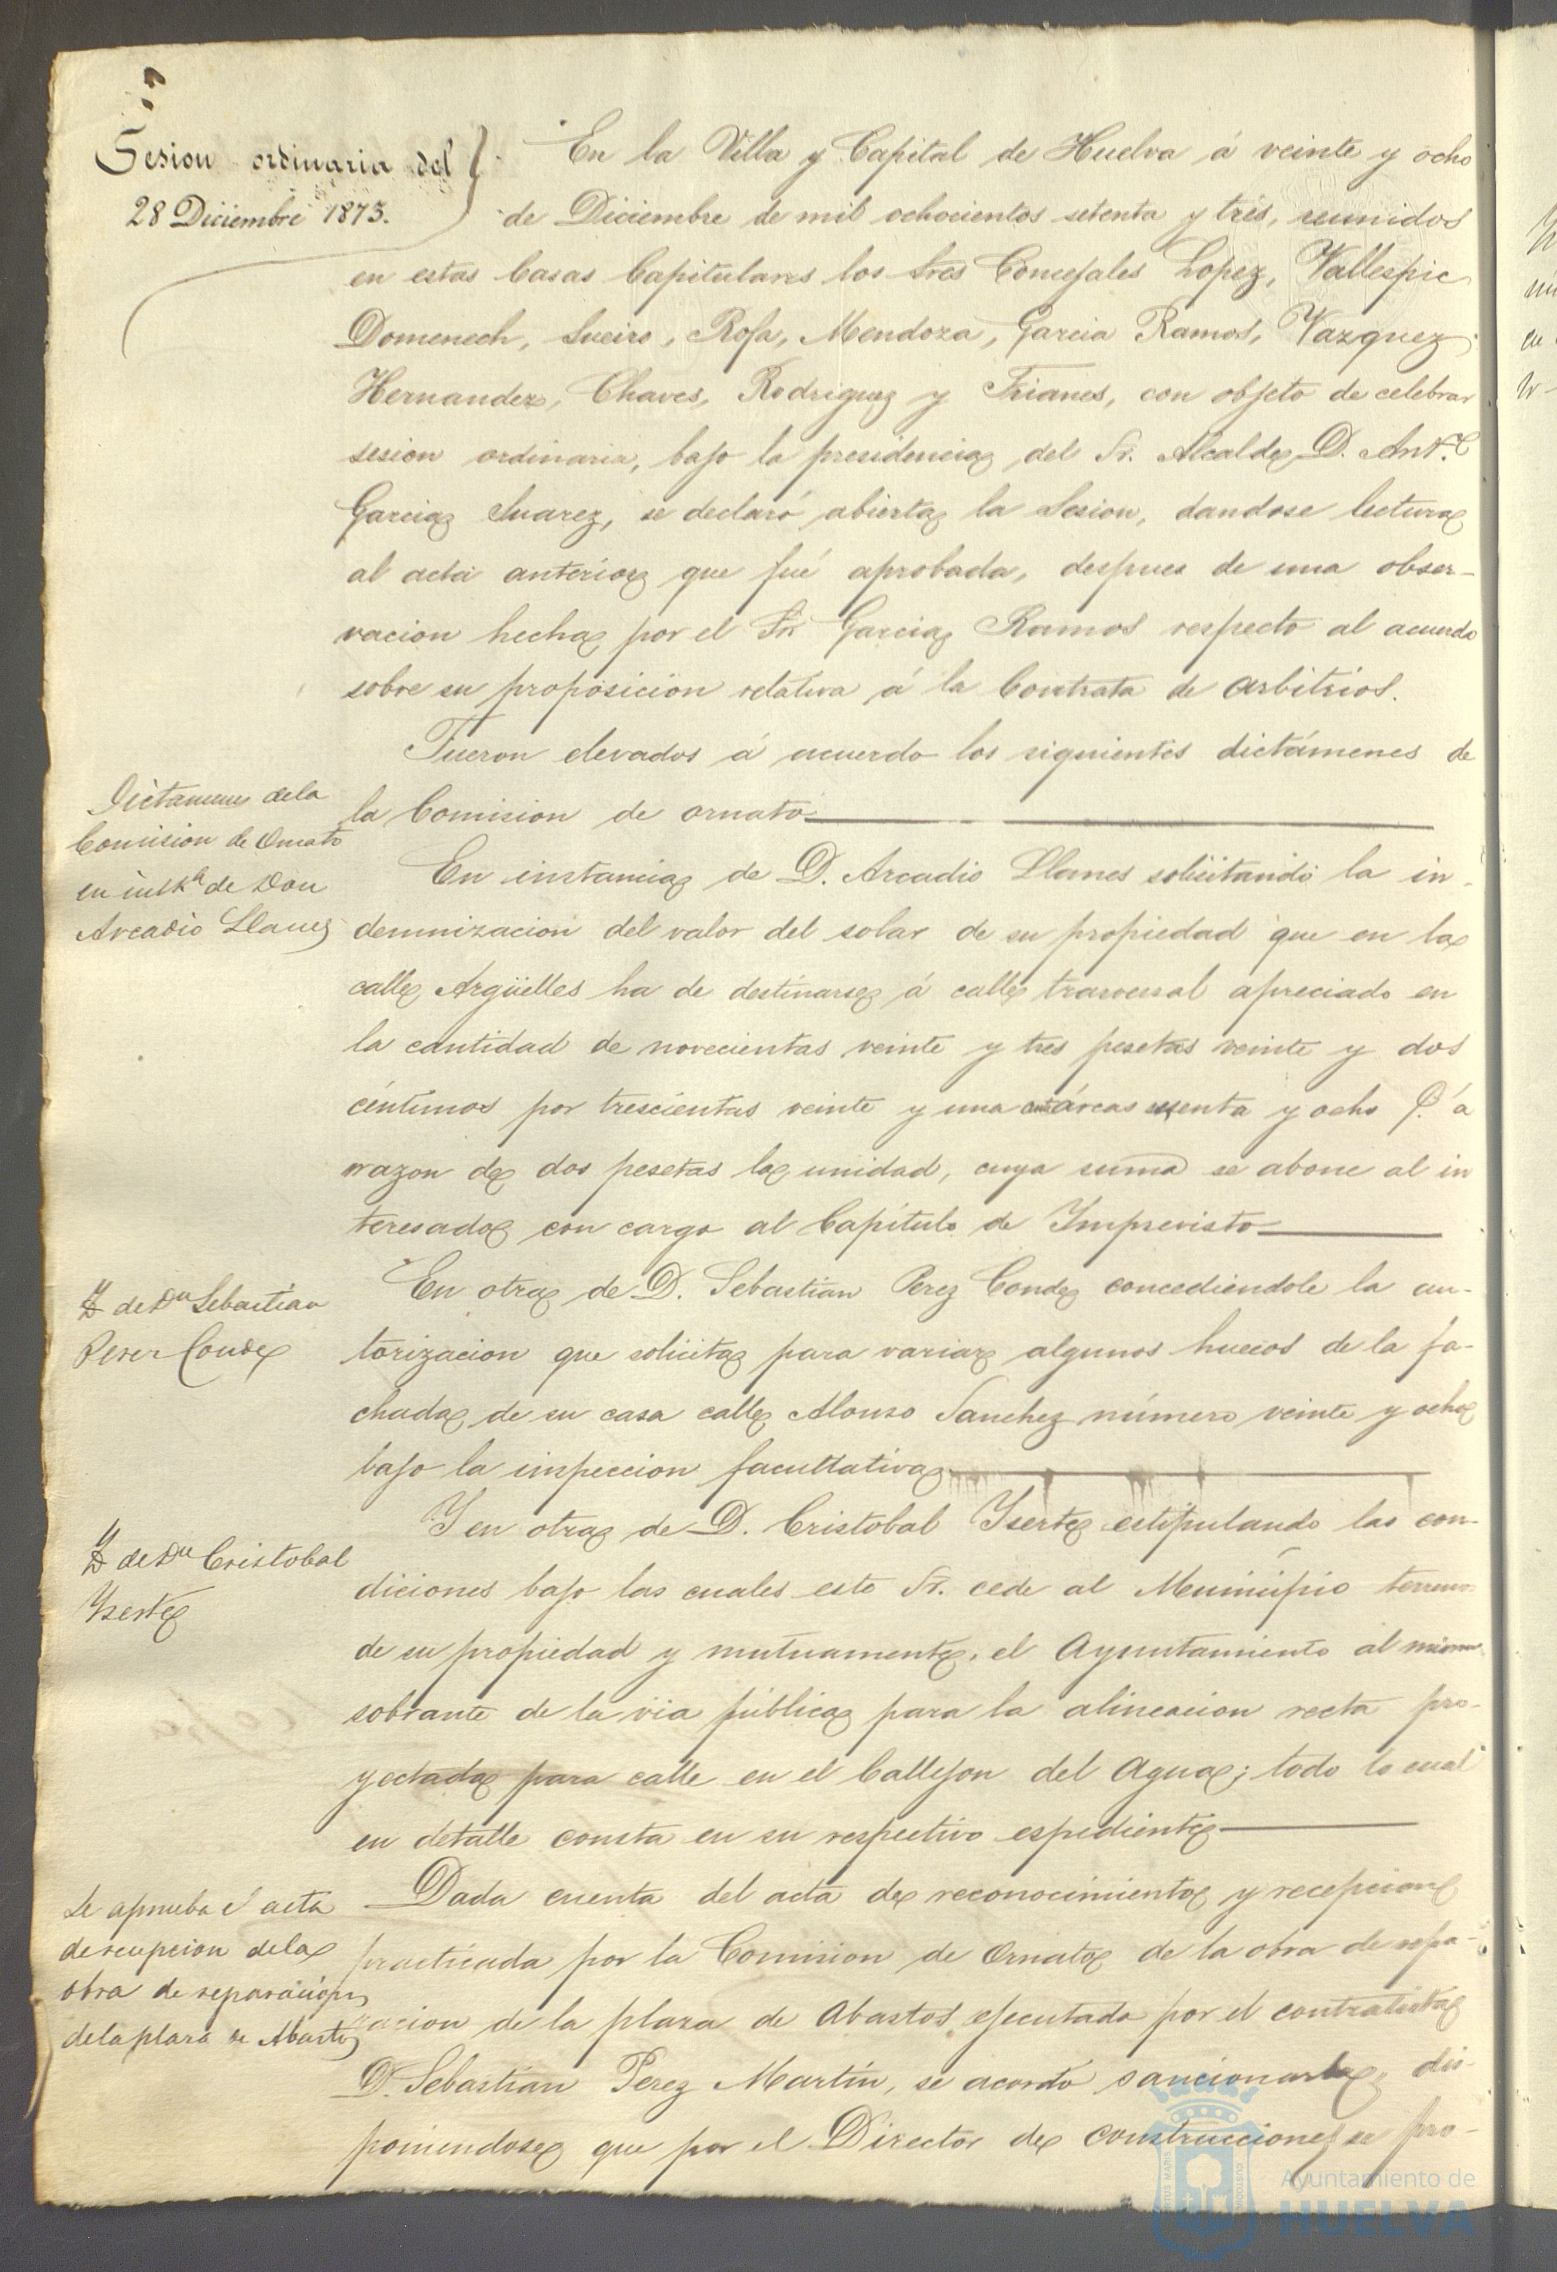 Sesion ordinaria del
28 Diciembre 1873.
En la Villa y Capital de Huelva á veinte y ocho
de Diciembre de mil ochocientos setenta y tres, reunidos
en estas Casas Capitulares los Sres Concejales Lopez, Vallespic
Domenech, Sueiro, Rofa, Mendoza, Garcia Ramos, Vazquez
Hernandez, Chaves, Rodriguez y Trianes, con objeto de celebrar
sesion ordinaria, bajo la presidencia del Sr. Alcalde D. Ant.º
Garcia Suarez, se declaró abierta la Sesion, dandose lectura
al acta anterior que fué aprobada, despues de una obser-
vacion hecha por el Sr. Garcia Ramos respecto al acuerdo
sobre su proposicion relativa á la Contrata de arbitrios.
Fueron elevados á acuerdo los siguientes dictámenes de
la Comision de ornato
Dictamenes de la
Comision de Ornato
en inst.ª de Don
Arcadio Llanes
En instancia de D. Arcadio Llanes solicitando la in-
demnizacion del valor del solar de su propiedad que en la
calle Argüelles ha de destinarse á calle trasversal apreciado en
la cantidad de novecientas veinte y tres pesetas veinte y dos
céntimos por trescientas veinte y una áreas y ocho á
razon de dos pesetas la unidad, cuya suma se abone al in
teresado con cargo al Capítulo de Imprevisto
Yd de Dn Sebastian
Perez Conde
En otra de D. Sebastian Perez Conde concediéndole la au-
torizacion que solicita para variar algunos huecos de la fa-
chada de su casa calle Alonso Sanchez número veinte y ocho
bajo la inspeccion facultativa
Yd de Dn Cristobal
Yserte
Y en otra de D. Cristobal Yserte estipulando las con-
diciones bajo las cuales este Sr. cede al Municipio terreno
de su propiedad y mutuamente el Ayuntamiento al mismo
sobrante de la via pública para la alineacion recta pro-
yectada para calle en el Callejon del Agua; todo lo cual
en detalle consta en su respectivo espediente
Se aprueba el acta
de recepcion de la
obra de reparacion
de la plaza de Abastos
Dada cuenta del acta de reconocimiento y recepcion
practicada por la Comision de Ornato de la obra de repa-
racion de la plaza de Abastos ejecutada por el contratista
D. Sebastian Perez Martin, se acordó sancionarla, dis-
poniendose que por el Director de construcciones se pro-
Ayuntamiento de
HUELVA